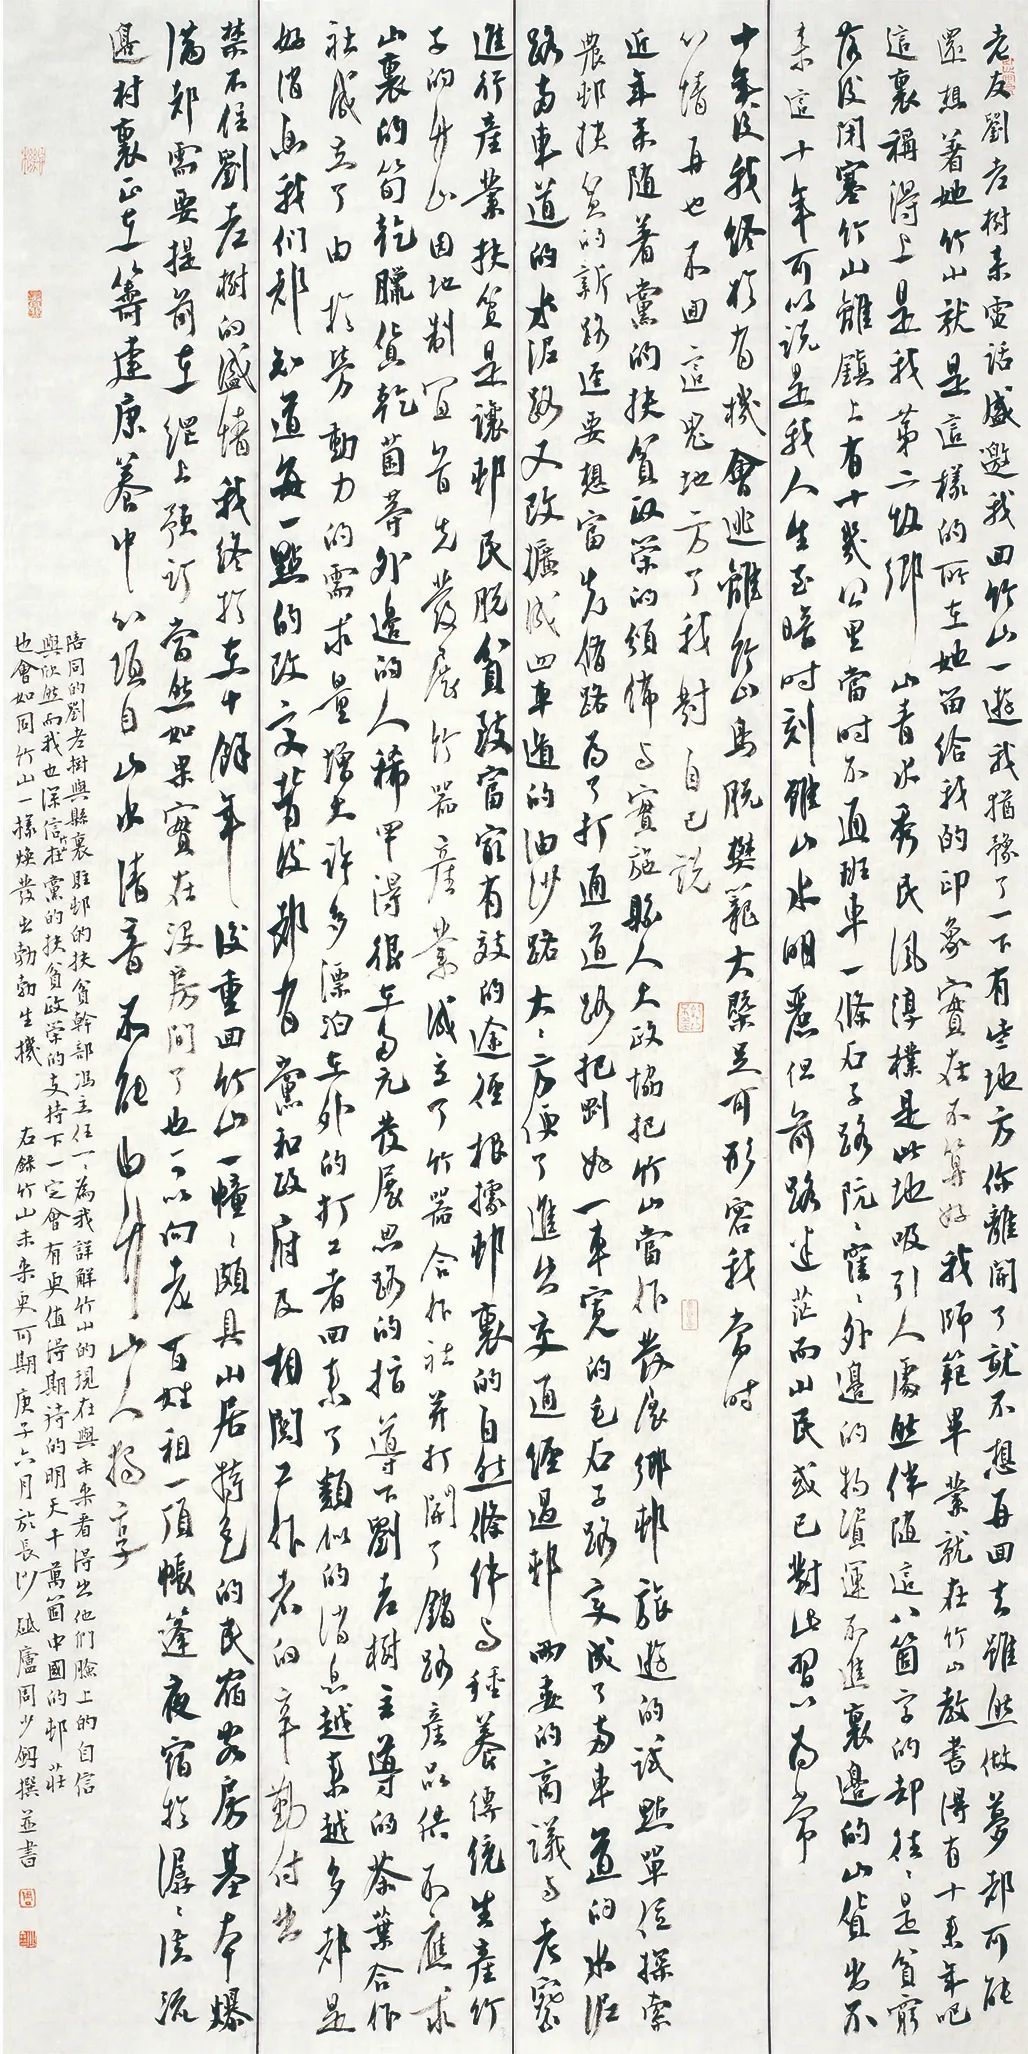 老友劉老樹來電話盛邀我回竹山一遊我猶豫了一下有些地方你離開了就不想再回去雖然做夢都可能
還想着她竹山就是這樣的所在她留給我的印象實在不算好我師範畢業就在竹山教書得有十來年吧
這裏稱得上是我第二故鄉　山青水秀民風淳樸是此地吸引人處然伴隨這八箇字的却往往是貧窮
落後閉塞竹山離鎮上有十幾公里當時不通班車一條石子路阮阮窪窪外邊的物資運不進裏邊的山貨出不
來這十年可以說是我人生至暗時刻雖山水明麗但前路迷茫而山民或已對此習以爲常
十年後我終於有機會逃離竹山鳥脫樊籠大槩足可形容我當時
心情再也不回這鬼地方了我對自己說
近年來隨着黨的扶貧政策的頒佈与實施縣人大政協把竹山當作發展鄉邨旅遊的試點單位探索
農邨扶貧的新路逕要想富先脩路爲了打通道路把剛好一車寬的毛石子路变成了両車道的水泥
路両車道的水泥路又改擴成四車道的油沙路大大方便了進出交通經過邨両委的商議与考察
進行產業扶貧是讓邨民脫貧致富最有效的途徑根據邨裏的自然條件与種養傳統生產竹
子的竹山因地制宜首先發展竹器產業成立了竹器合作社并打開了銷路產品供不應求
山裏的筍乾臘貨乾菌等外邊的人稀罕得很在多元發展思路的指導下劉老樹主導的茶葉合作
社成立了由於勞動力的需求量增大許多漂泊在外的打工者回來了類似的消息越來越多都是
好消息我們都知道每一點的改变背後都有黨和政府及相關工作者的辛勤付出
禁不住劉老樹的盛情我終於在十餘年後重回竹山一幢幢頗具山居特色的民宿客房基本爆
滿都需要提前在網上預訂當然如果實在没房間了也可以向老百姓租一頂帳篷夜宿於潺潺溪流
邊村裏正在籌建康養中心項目山水清音不能由竹山人獨享
陪同的劉老樹與縣裏駐邨的扶貧幹部馮主任一一爲我詳解竹山的現在與未來看得出他們臉上的自信
與欣然而我也深信在黨的扶貧政策的支持下一定會有更值得期待的明天千萬箇中國的邨莊
也會如同竹山一樣煥發出勃勃生機　右錄竹山未來更可期庚子六月於長沙　廬周少劍撰並書